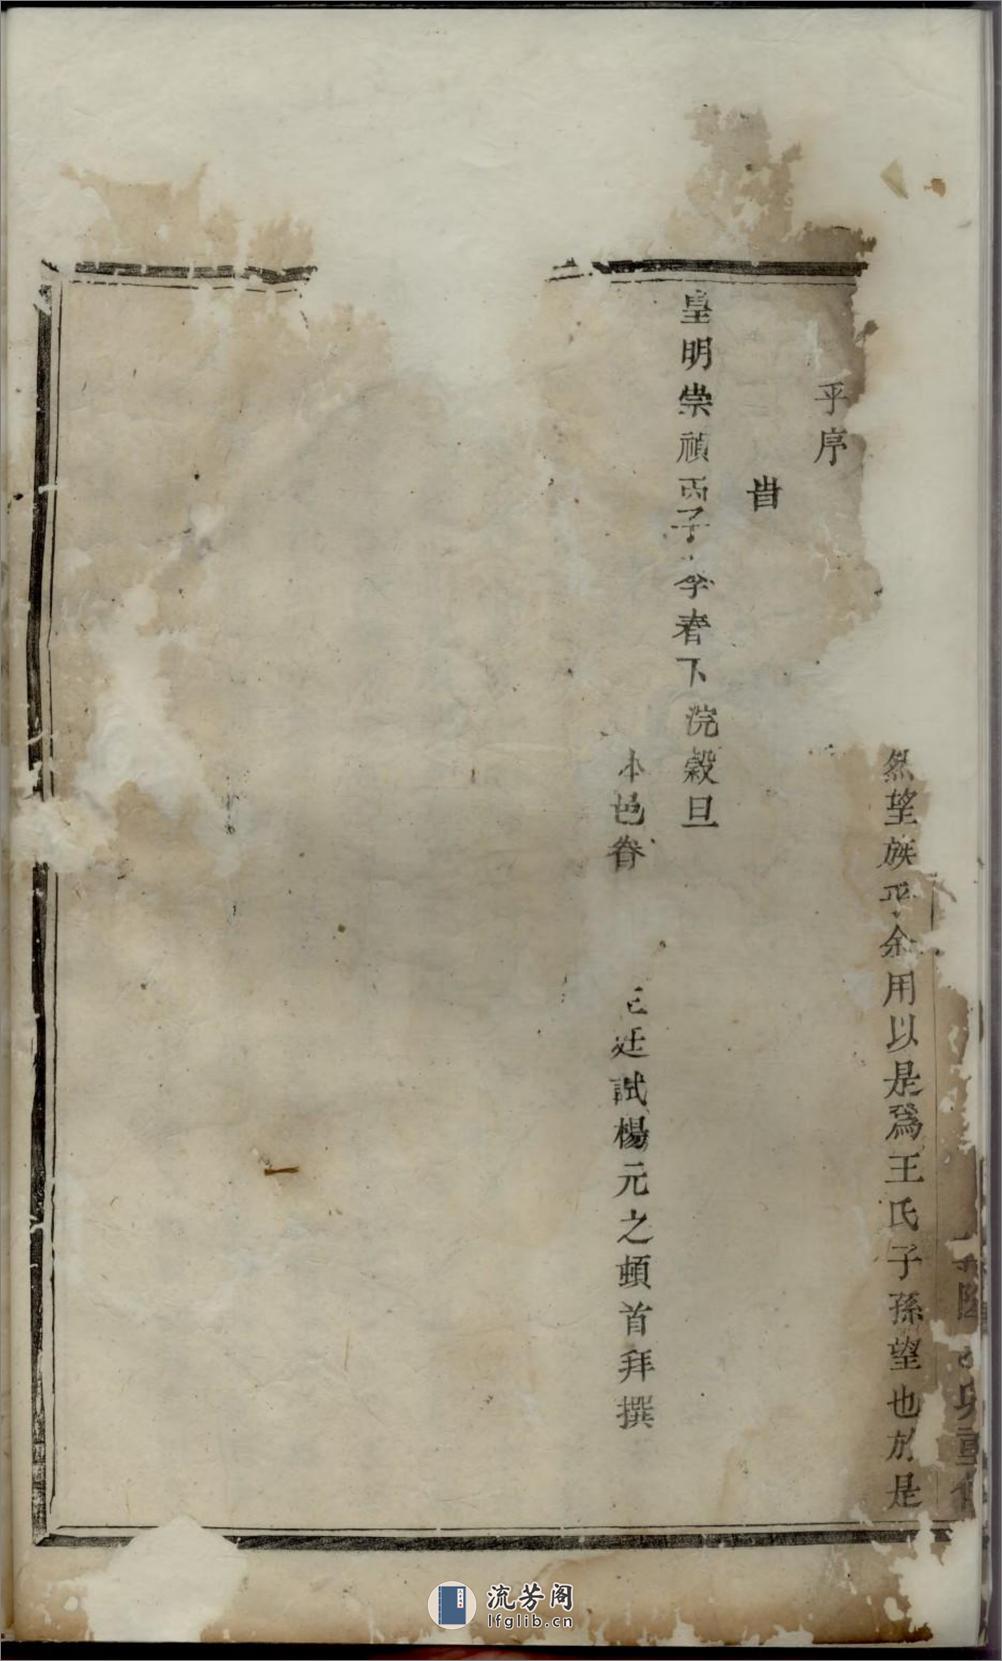 然望族乎余用以是為王氏子孫望也於是
乎序
昔
皇明崇禎丙子季春下浣穀旦
本邑眷
廷試楊元之頓首拜撰
流芳阁
lfglib.cn